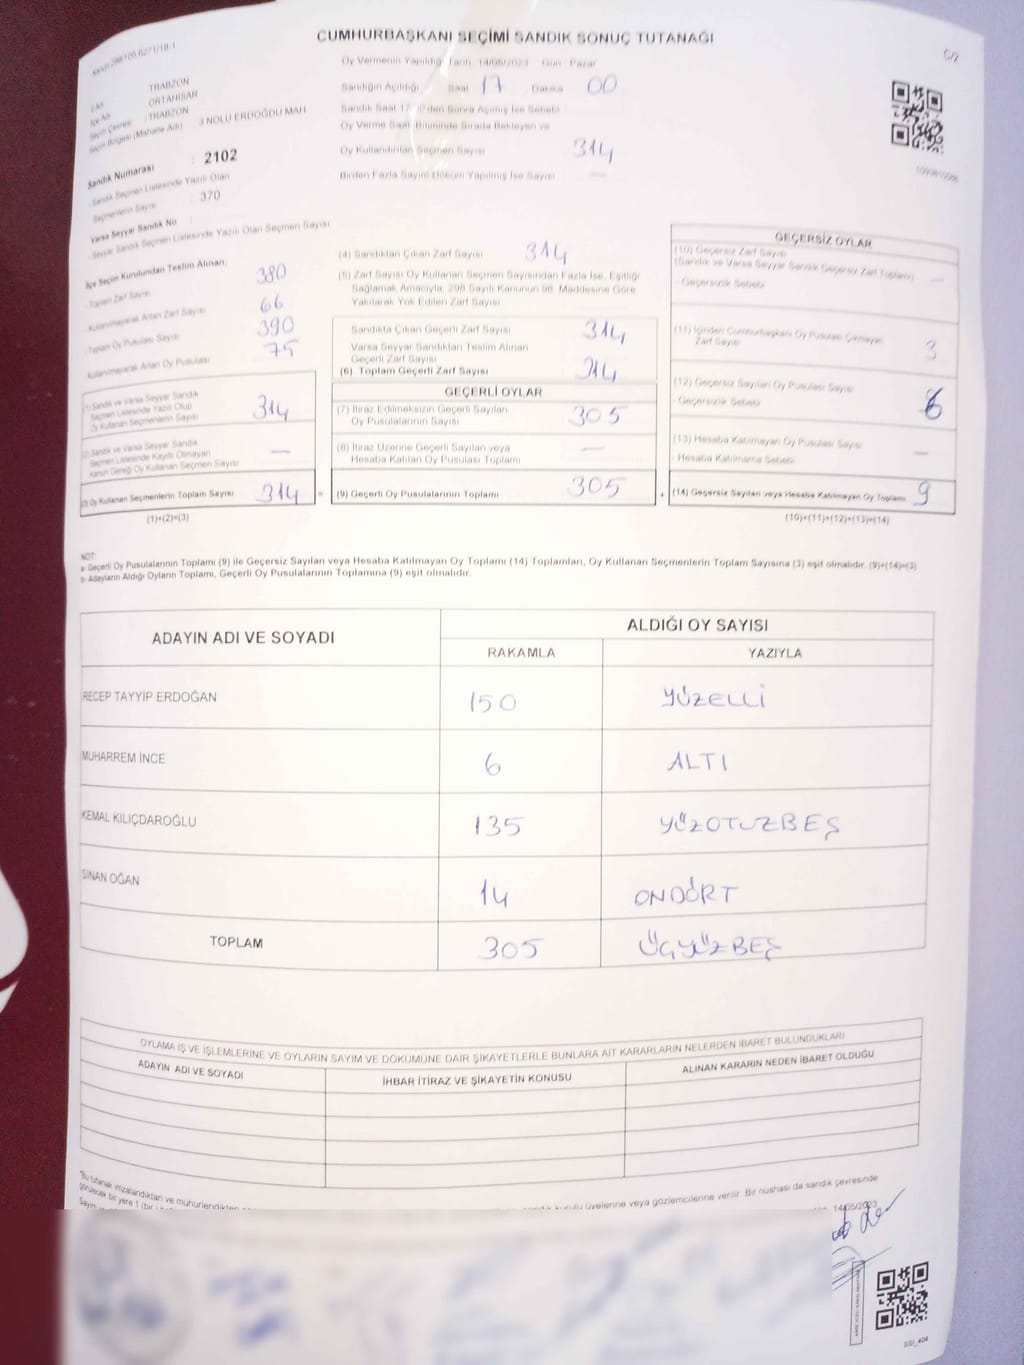 CUMHURBAŞKANI SEÇİMİ SANDIK SONUÇ TUTANAĞI
C/2
Oy Vermenin Yapıldığı Tarih: 14/05/2023 Gün: Pazar
Sandığın Açıldığı Saat 17 Dakika 00
Sandık Saat 17:00'den Sonra Açılmış İse Sebebi
Oy Verme Saati Bitiminde Sırada Bekleyen ve
Oy Kullandırılan Seçmen Sayısı 314
Birden Fazla Sayım Döküm Yapılmış İse Sayısı —
İl Adı : TRABZON
İlçe Adı : ORTAHİSAR
Seçim Çevresi : TRABZON
Seçim Bölgesi (Mahalle Adı) : 3 NOLU ERDOĞDU MAH.
Sandık Numarası : 2102
Sandık Seçmen Listesinde Yazılı Olan
Seçmenlerin Sayısı : 370
Varsa Seyyar Sandık No :
Seyyar Sandık Seçmen Listesinde Yazılı Olan Seçmen Sayısı
İlçe Seçim Kurulundan Teslim Alınan;
- Toplam Zarf Sayısı 380
- Kullanılmayarak Artan Zarf Sayısı 66
- Toplam Oy Pusulası Sayısı 390
- Kullanılmayarak Artan Oy Pusulası 75
(1) Sandık ve Varsa Seyyar Sandık
Seçmen Listesinde Yazılı Olup
Oy Kullanan Seçmenlerin Sayısı 314
(2) Sandık ve Varsa Seyyar Sandık
Seçmen Listesinde Kayıtlı Olmayan
Kanun Gereği Oy Kullanan Seçmen Sayısı —
(3) Oy Kullanan Seçmenlerin Toplam Sayısı 314 =
(1)+(2)=(3)
(4) Sandıktan Çıkan Zarf Sayısı 314
(5) Zarf Sayısı Oy Kullanan Seçmen Sayısından Fazla İse, Eşitliği
Sağlamak Amacıyla, 298 Sayılı Kanunun 98. Maddesine Göre
Yakılarak Yok Edilen Zarf Sayısı
Sandıkta Çıkan Geçerli Zarf Sayısı 314
Varsa Seyyar Sandıktan Teslim Alınan
Geçerli Zarf Sayısı
(6) Toplam Geçerli Zarf Sayısı 314
GEÇERLİ OYLAR
(7) İtiraz Edilmeksizin Geçerli Sayılan
Oy Pusulalarının Sayısı 305
(8) İtiraz Üzerine Geçerli Sayılan veya
Hesaba Katılan Oy Pusulası Toplamı —
(9) Geçerli Oy Pusulalarının Toplamı 305 +
GEÇERSİZ OYLAR
(10) Geçersiz Zarf Sayısı
(Sandık ve Varsa Seyyar Sandık Geçersiz Zarf Toplamı) —
- Geçersizlik Sebebi
(11) İçinden Cumhurbaşkanı Oy Pusulası Çıkmayan
Zarf Sayısı 3
(12) Geçersiz Sayılan Oy Pusulası Sayısı 6
- Geçersizlik Sebebi
(13) Hesaba Katılmayan Oy Pusulası Sayısı —
- Hesaba Katılmama Sebebi
(14) Geçersiz Sayılan veya Hesaba Katılmayan Oy Toplamı 9
(10)+(11)+(12)+(13)=(14)
NOT:
a- Geçerli Oy Pusulalarının Toplamı (9) ile Geçersiz Sayılan veya Hesaba Katılmayan Oy Toplamı (14) Toplamları, Oy Kullanan Seçmenlerin Toplam Sayısına (3) eşit olmalıdır. (9)+(14)=(3)
b- Adayların Aldığı Oyların Toplamı, Geçerli Oy Pusulalarının Toplamına (9) eşit olmalıdır.
ADAYIN ADI VE SOYADI
ALDIĞI OY SAYISI
RAKAMLA YAZIYLA
RECEP TAYYİP ERDOĞAN 150 YÜZELLİ
MUHARREM İNCE 6 ALTI
KEMAL KILIÇDAROĞLU 135 YÜZOTUZBEŞ
SİNAN OĞAN 14 ONDÖRT
TOPLAM 305 ÜÇYÜZBEŞ
OYLAMA İŞ VE İŞLEMLERİNE VE OYLARIN SAYIM VE DÖKÜMÜNE DAİR ŞİKAYETLERLE BUNLARA AİT KARARLARIN NELERDEN İBARET BULUNDUKLARI
ADAYIN ADI VE SOYADI İHBAR İTİRAZ VE ŞİKAYETİN KONUSU ALINAN KARARIN NEDEN İBARET OLDUĞU
"Bu tutanak imzalandıktan ve mühürlendikten
sandık kurulu üyelerine veya gözlemcilerine verilir. Bir nüshası da sandık çevresinde
görülecek bir yere 1 (bir
14/05/2023
SSI_404